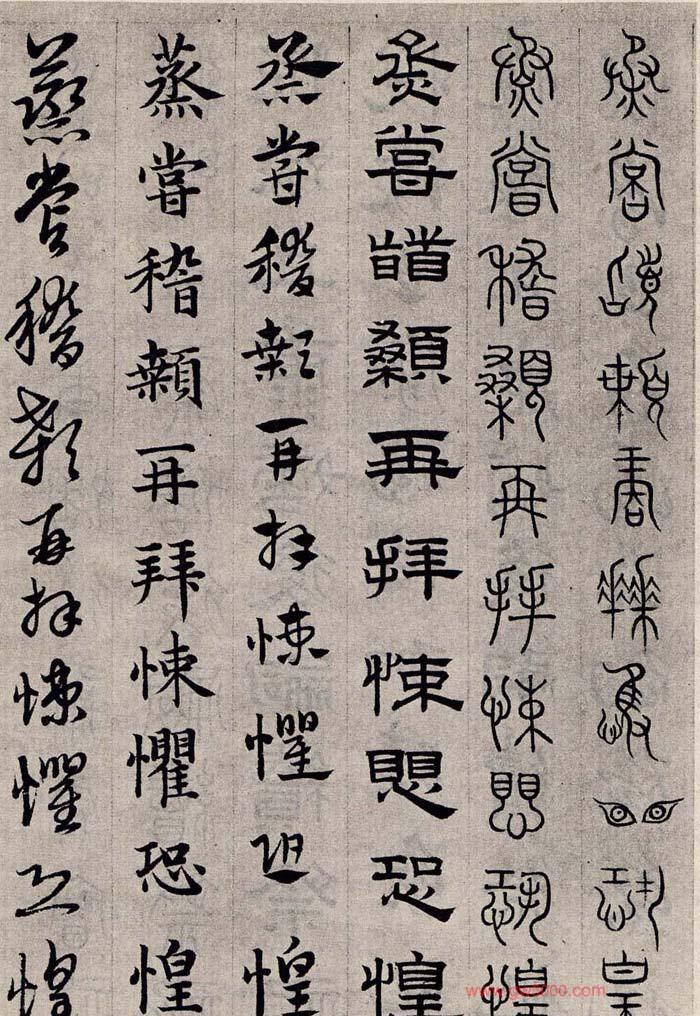 烝嘗稽顙再拜悚懼恐皇
烝嘗稽顙再拜悚懼恐惶
烝嘗稽顙再拜悚懼恐惶
烝嘗稽顙再拜悚懼恐惶
蒸嘗稽顙再拜悚懼恐惶
蒸嘗稽顙再拜悚懼恐惶